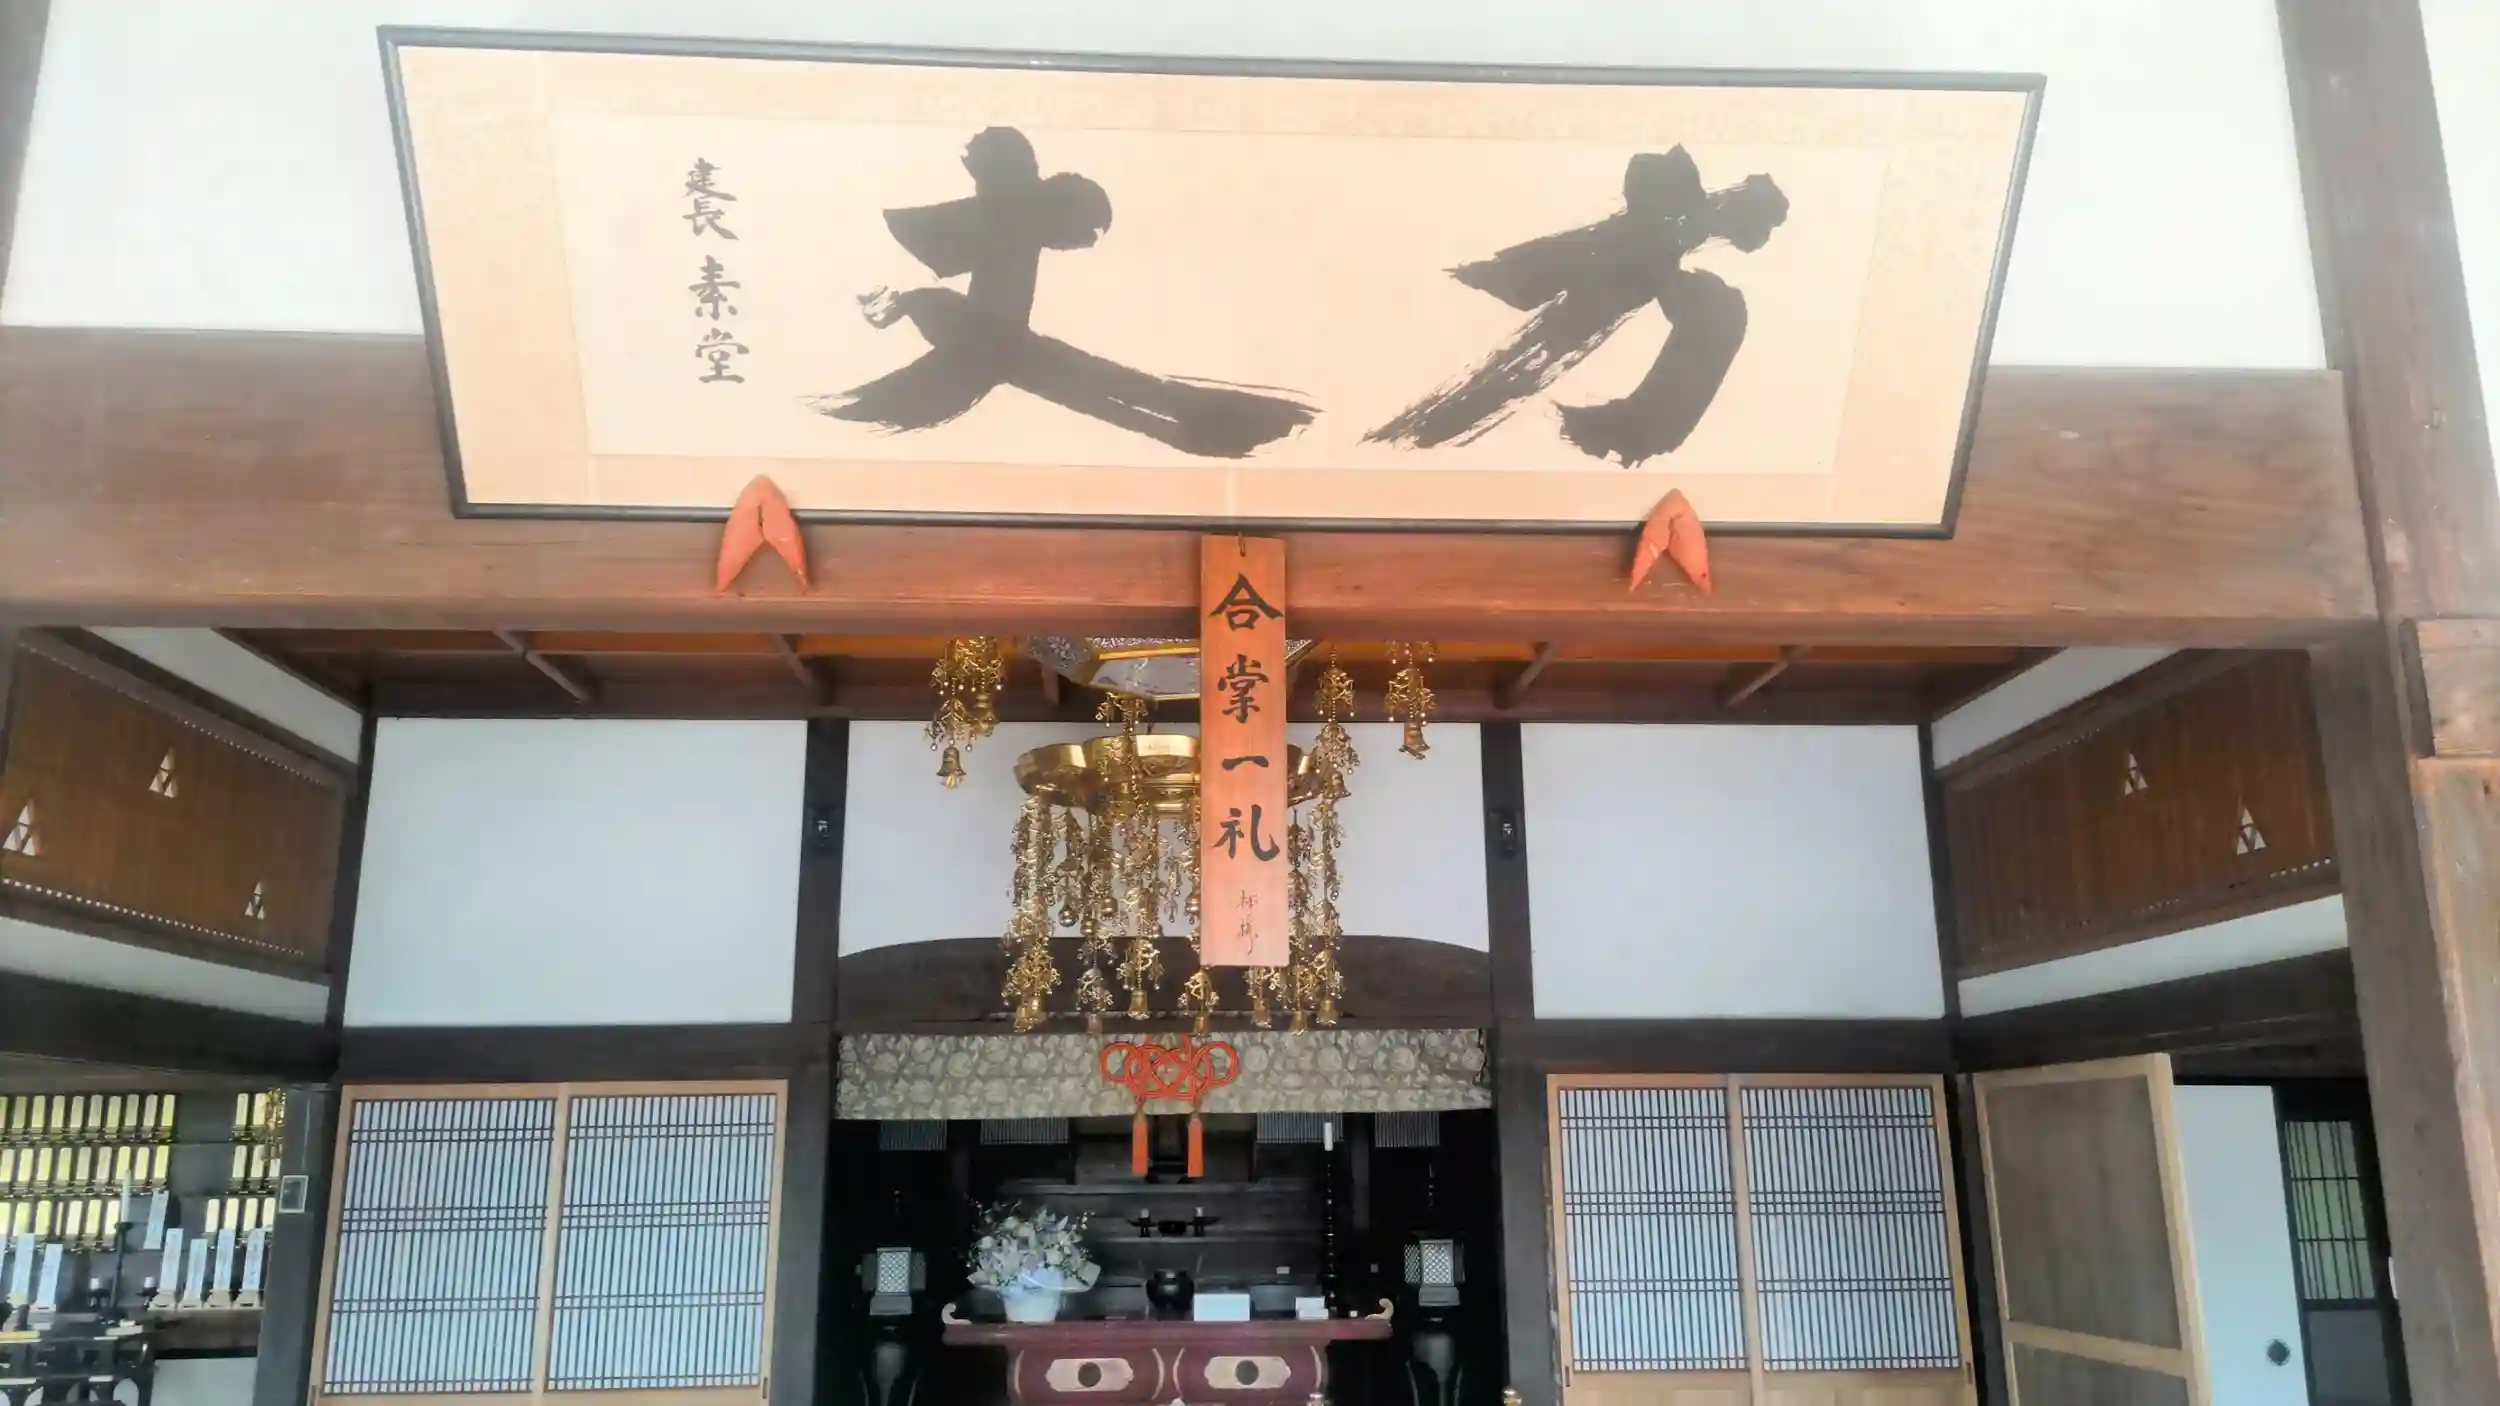 方丈
建長 素堂
合掌一礼